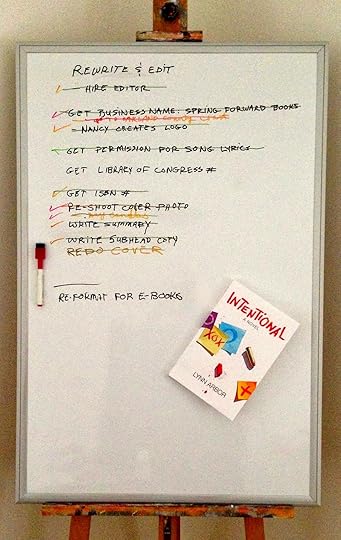 REWRITE & EDIT
HIRE EDITOR
GET BUSINESS NAME: SPRING FORWARD BOOKS
TO OAKLAND COUNTY CLERK
NANCY CREATES LOGO
GET PERMISSION FOR SONG LYRICS
GET LIBRARY OF CONGRESS #
GET ISBN #
RE-SHOOT COVER PHOTO
WRITE SUMMARY
WRITE SUBHEAD COPY
REDO COVER
RE-FORMAT FOR E-BOOKS
INTENTIONAL
A NOVEL
XOX
?
X
LYNN ARBOR